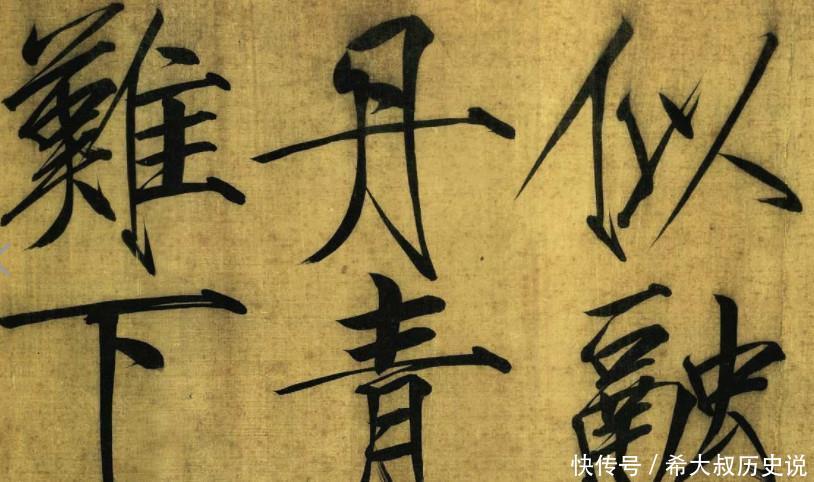 似融
丹青
難下
快传号 / 希大叔历史说